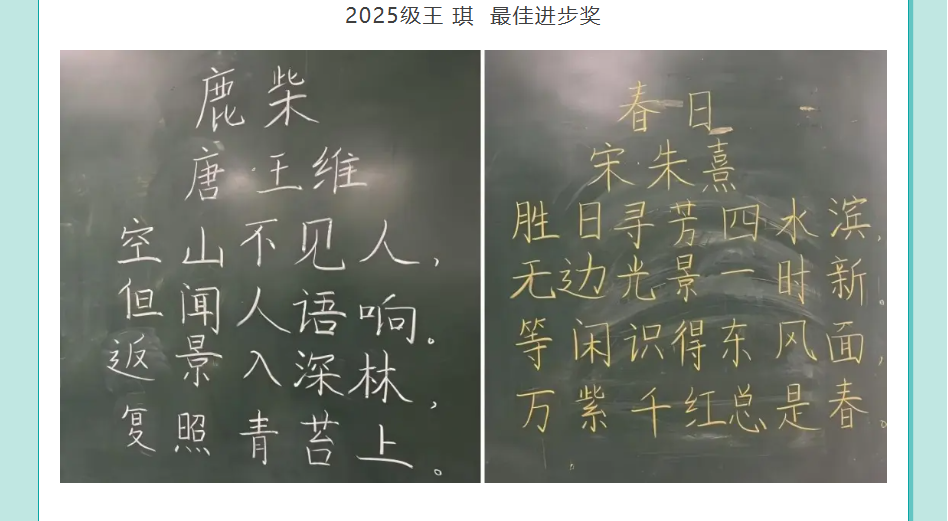 2025级王 琪 最佳进步奖
鹿柴
唐·王维
空山不见人，
但闻人语响。
返景入深林，
复照青苔上。
春日
宋·朱熹
胜日寻芳四水滨，
无边光景一时新。
等闲识得东风面，
万紫千红总是春。